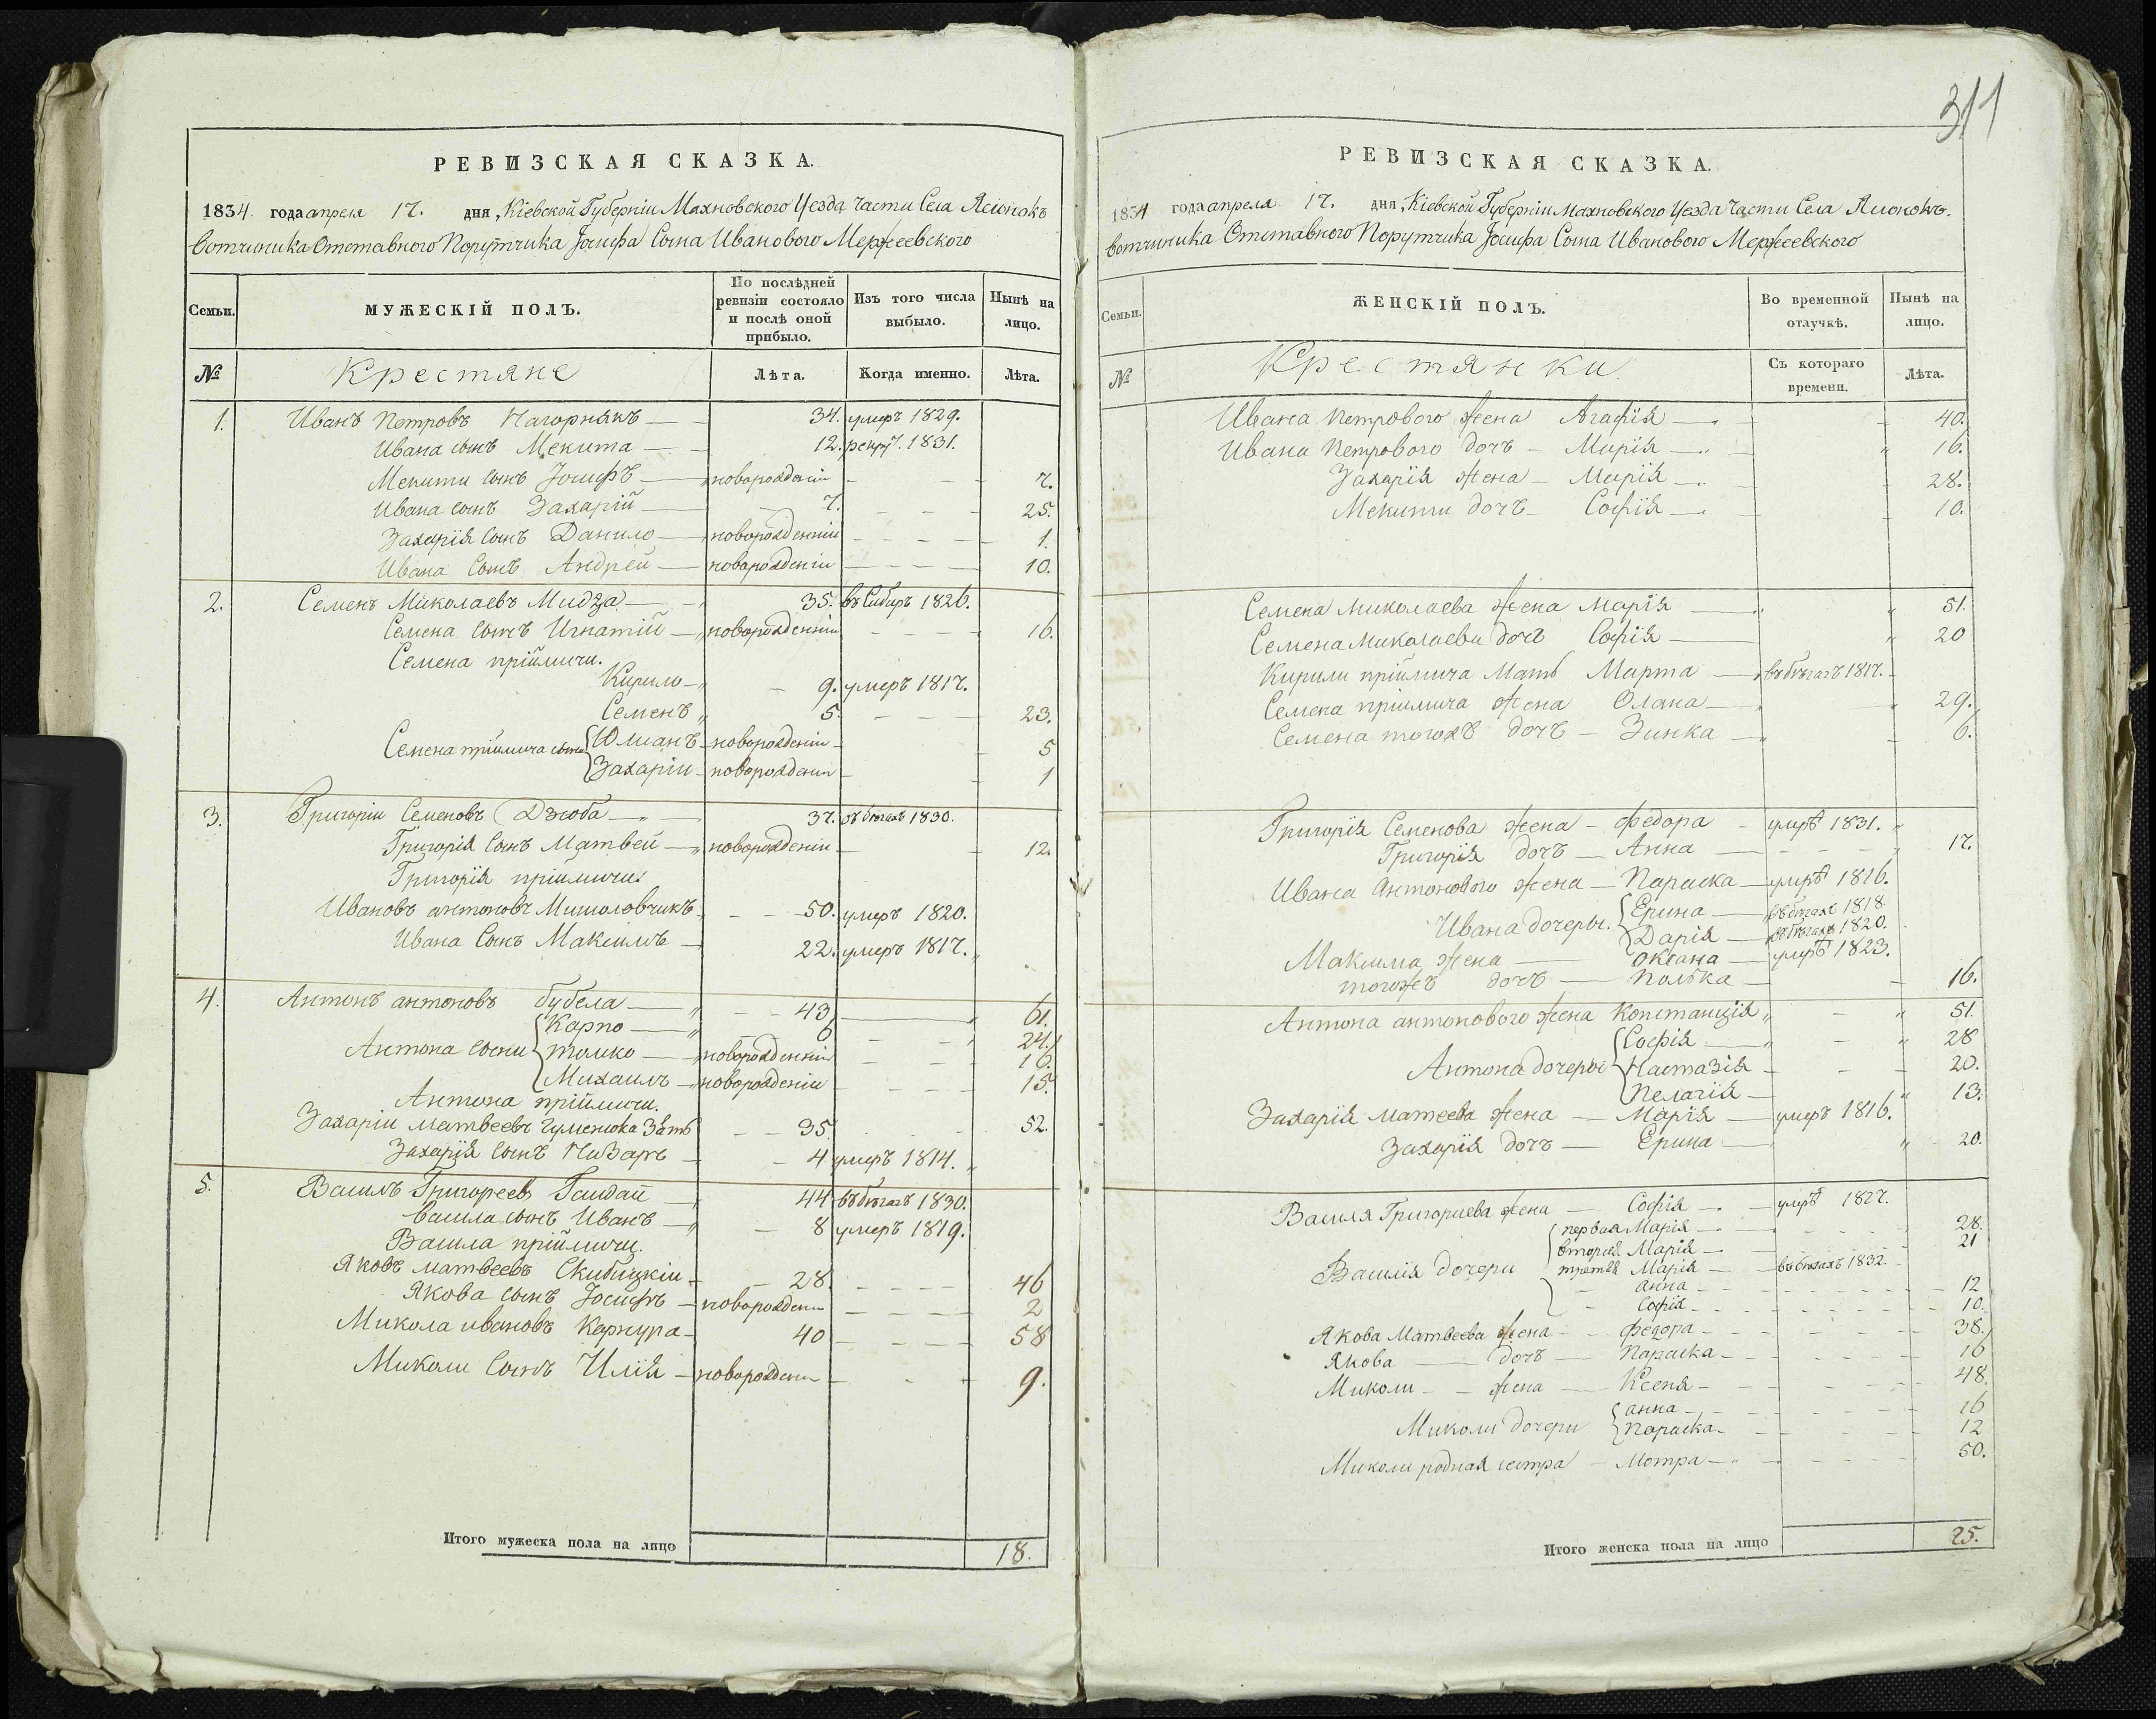 311
РЕВИЗСКАЯ СКАЗКА.
1834. года апреля 17. дня, Кіевской Губерніи Махновского Уезда Части Села Ясіонокъ
вотчинника Отставного Порутчика Іосифа Сына Иванового Мержеевского
Семьи. МУЖЕСКІЙ ПОЛЪ. По послѣдней ревизіи состояло и послѣ оной прибыло. Изъ того числа выбыло. Нынѣ на лицо.
№ Крестяне Лѣта. Когда именно. Лѣта.
1. Иванъ Петровъ Нагорнякъ 34. умеръ 1829.
Ивана сынъ Мекита 12. рекру. 1831.
Мекити сынъ Іосифъ новорожденіи 7.
Ивана сынъ Захарій 7. 25.
Захарія сынъ Данило новорожденніи 1.
Ивана Сынъ Андрей новорожденіи 10.
2. Семенъ Миколаевъ Мидза 35. въ Сибиръ 1826.
Семена сынъ Игнатій новорожденніи 16.
Семена пріймичи.
Кирило 9. умеръ 1817.
Семенъ 5. 23.
Семена пріймича сыни Юлианъ новорожденіи 5
Захаріи новорожденіи 1
3. Григоріи Семеновъ Дзюба 37. въ бѣгахъ 1830.
Григорія Сынъ Матвей новорожденіи 12.
Григорія пріимичи:
Ивановъ антоновъ Мишоловчикъ 50. умеръ 1820.
Ивана Сынъ Максимъ 22. умеръ 1817.
4. Антонъ антоновъ бубела 43 61.
Карпо 6 24.
Антона сыни томко новорожденніи 16.
Михаилъ новорожденіи 15.
Антона пріймичи.
Захаріи Матвеевъ Гуменюка Зять 35. 52.
Захарія сынъ Назаръ 4 умеръ 1814.
5. Василъ Григореевъ Гайдай 44 въ бѣгахъ 1830.
Васила сынъ Иванъ 8 умеръ 1819.
Васила пріймичи.
Яковъ матвеевъ Скибицкіи 28. 46
Якова сынъ Іосифъ новорожденіи 2
Микола ивановъ Карнура 40 58
Миколи Сынъ Илія новорожденіи 9.
Итого мужеска пола на лицо 18.
РЕВИЗСКАЯ СКАЗКА.
1834 года апреля 17. дня, Кіевской Губерніи Махновского Уезда Части Села Ясионокъ.
вотчинника Отставного Порутчика Іосифа Сына Иванового Мержеевского
Семьи. ЖЕНСКІЙ ПОЛЪ. Во временной отлучкѣ. Нынѣ на лицо.
№ Крестянки Съ котораго времени. Лѣта.
Ивана Петрового жена Агафія 40.
Ивана Петрового дочъ Марія 16.
Захарія жена Марія 28.
Мекити дочъ Софія 10.
Семена Миколаева жена Марія 51.
Семена Миколаева дочъ Софія 20
Кирили пріймича Мать Марта въ бѣгахъ 1817.
Семена пріимича жена Олана 29.
Семена тогожъ дочъ Зинка 6.
Григорія Семенова жена Федора умрѣ 1831.
Григорія дочъ Анна 17.
Ивана Антонового жена Параска умрѣ 1816.
Ивана дочеры. Ерина въ бѣгахъ 1818
Дарія въ бѣгахъ 1820.
Максима жена оксана умрѣ 1823.
тогожъ дочъ Полька 16.
Антона антонового жена Констанція 51.
Софія 28
Антона дочеры Настазія 20.
Пелагія 13.
Захарія матеева жена Марія умеръ 1816.
Захарія дочъ Ерина 20.
Василя Григориева жена Софія умрѣ 1827.
первая Марія 28.
вторая Марія 21
Василія дочери третья Марія въ бѣгахъ 1832.
анна 12
Софія 10.
Якова Матвеева жена Федора 38.
Якова дочъ Параска 16
Миколи жена Ксеня 48.
анна 16
Миколи дочери Параска 12
Миколи родная сестра Мотра 50.
Итого женска пола на лицо 25.